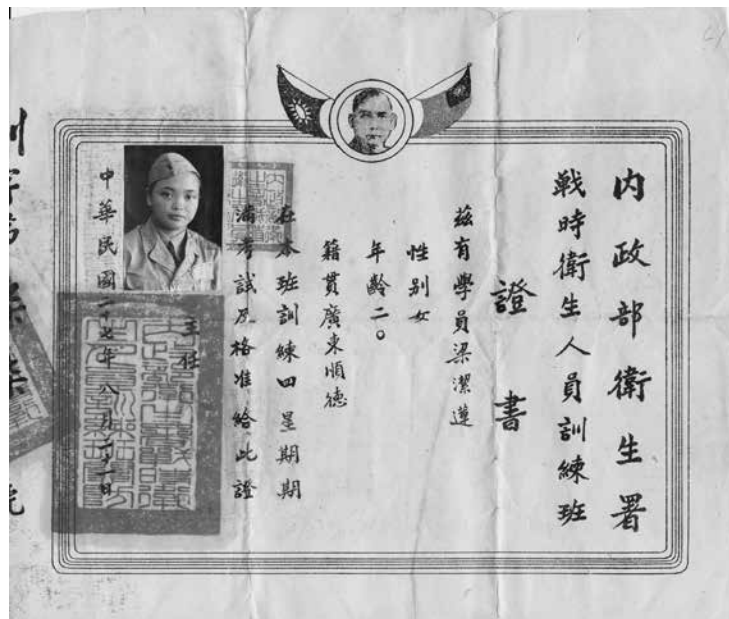 内政部衛生署
戰時衛生人員訓練班
證書
茲有學員梁潔蓮
性別女
年齡二〇
籍貫廣東順德
在本班訓練四星期期
滿考試及格准給此證
主任
中華民國二十七年八月二十一日